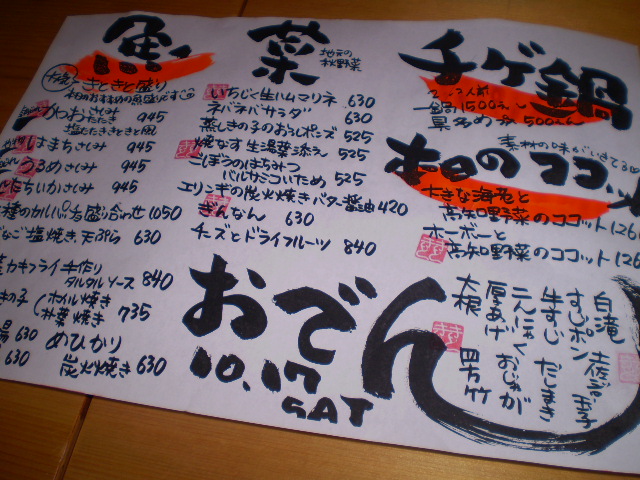 魚
ときどき盛り
本日のおすすめの魚盛りです
かわおさしみ 945
塩たたきときどき風
はまちさしみ 945
うるめさしみ 945
ちいかさしみ 945
種のカルパッチョ盛り合わせ 1050
塩焼き 天ぷら 630
カキフライ 手作り
タルタルソース 840
きの子 ホイル焼き
朴葉焼き 735
630 めひかり
630 炭火焼き 630
菜
地元の
秋野菜
いちじく生ハムマリネ 630
ネバネバサラダ 630
蒸しきの子のおろしポンズ 525
焼なす 生湯葉添え 525
ごぼうのはちみつ
バルサミコいため 525
エリンギの炭火焼きバター醤油 420
ぎんなん 630
チーズとドライフルーツ 840
チゲ鍋
2~3人前
一鍋 1500えん
具多め 500えん
素材の味がいきてる
本日のココ
大きな海老と
高知野菜のココット 126
ホーボーと
高知野菜のココット 126
おでん
10.17
SAT
白滝
すじポン
牛すじ だしまき
こんにゃく おじゃが
厚あげ
大根 四方竹
玉子